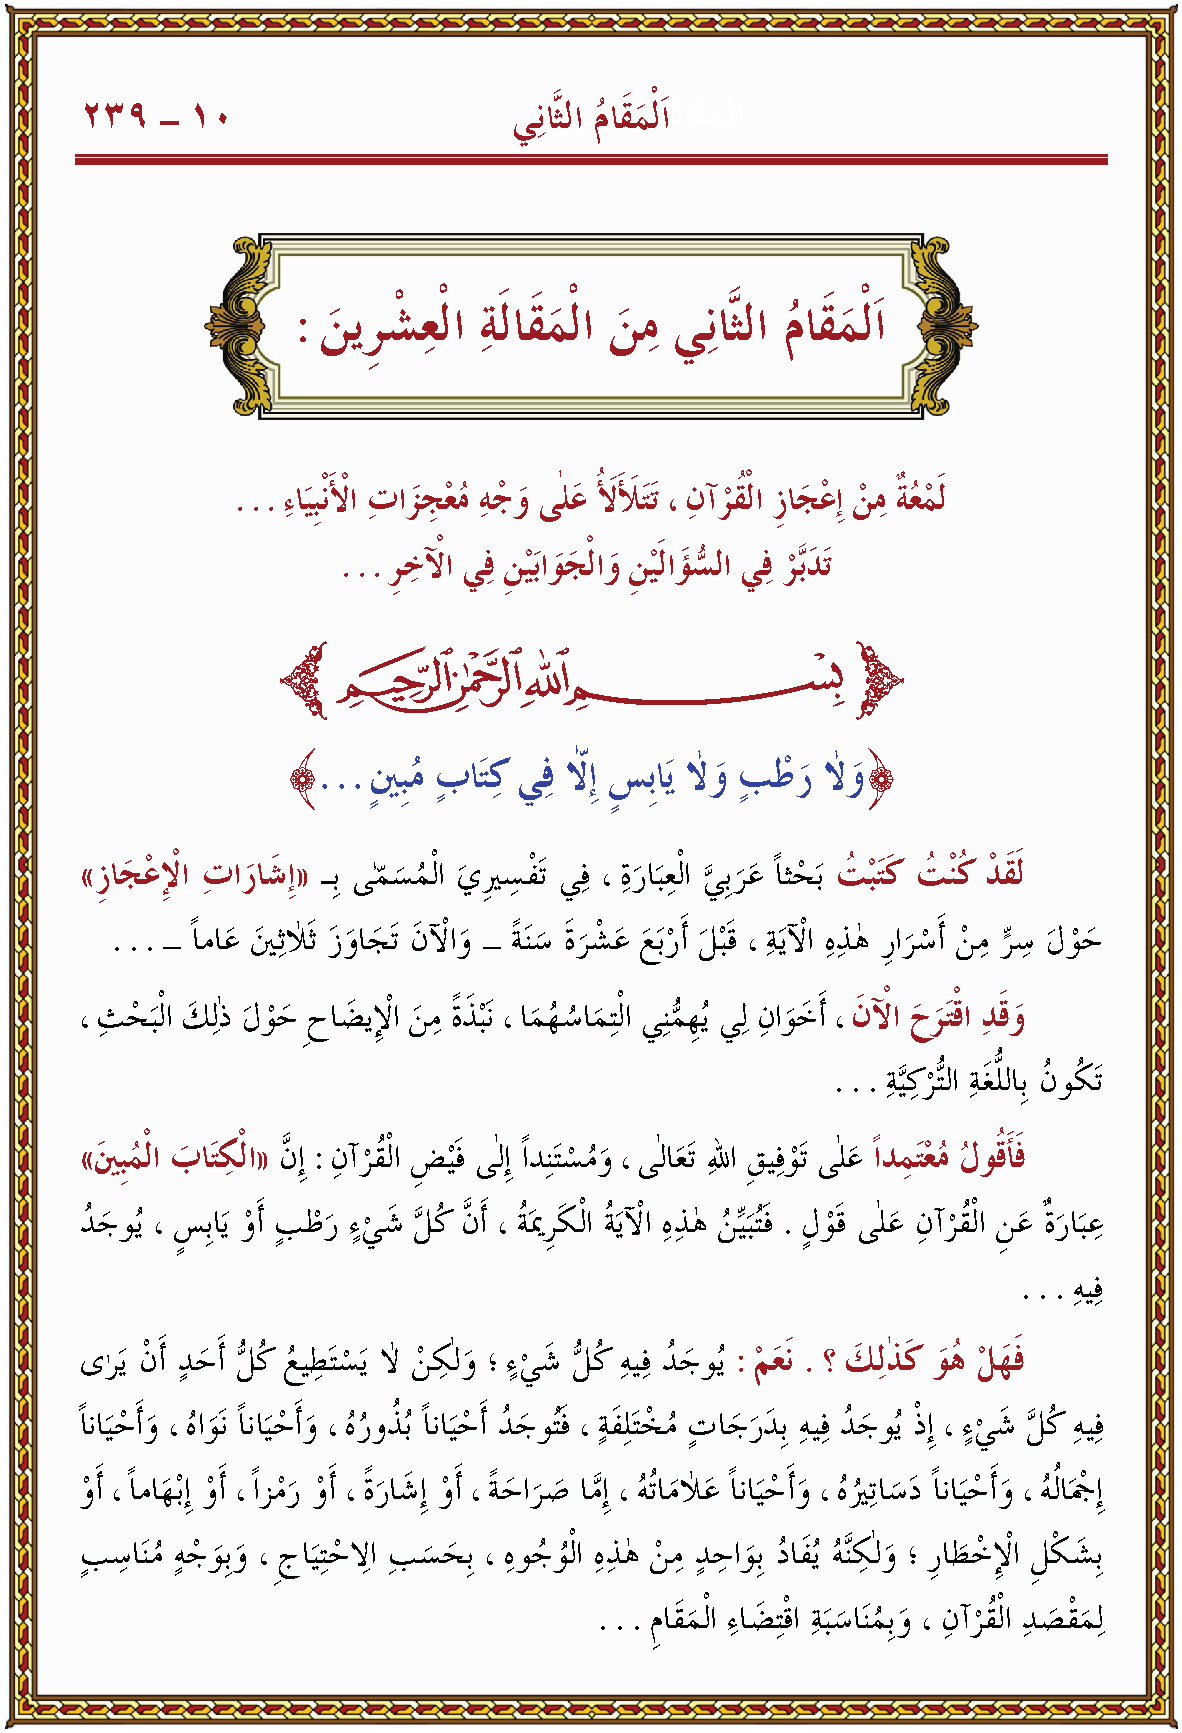 اَلْمَقَامُ الثَّانِي ٢٣٩ – ١٠
اَلْمَقَامُ الثَّانِي مِنَ الْمَقَالَةِ الْعِشْرِينَ :
لَمْعَةٌ مِنْ إِعْجَازِ الْقُرْآنِ ، تَتَلَأْلَأُ عَلٰى وَجْهِ مُعْجِزَاتِ الْأَنْبِيَاءِ . . .
تَدَبَّرْ فِي السُّؤَالَيْنِ وَالْجَوَابَيْنِ فِي الْآخِرِ . . .
بِسْمِ اللّٰهِ الرَّحْمٰنِ الرَّحِيمِ
﴿وَلَا رَطْبٍ وَلَا يَابِسٍ إِلَّا فِي كِتَابٍ مُبِينٍ . . .﴾
لَقَدْ كُنْتُ كَتَبْتُ بَحْثاً عَرَبِيَّ الْعِبَارَةِ ، فِي تَفْسِيرِيَ الْمُسَمّٰى بِـ «إِشَارَاتِ الْإِعْجَازِ»
حَوْلَ سِرٍّ مِنْ أَسْرَارِ هٰذِهِ الْآيَةِ ، قَبْلَ أَرْبَعَ عَشْرَةَ سَنَةً – وَالْآنَ تَجَاوَزَ ثَلَاثِينَ عَاماً – . . .
وَقَدِ اقْتَرَحَ الْآنَ ، أَخَوَانِ لِي يُهِمُّنِي الْتِمَاسُهُمَا ، نَبْذَةً مِنَ الْإِيضَاحِ حَوْلَ ذٰلِكَ الْبَحْثِ ،
تَكُونُ بِاللُّغَةِ التُّرْكِيَّةِ . . .
فَأَقُولُ مُعْتَمِداً عَلٰى تَوْفِيقِ اللهِ تَعَالٰى ، وَمُسْتَنِداً إِلٰى فَيْضِ الْقُرْآنِ : إِنَّ «الْكِتَابَ الْمُبِينَ»
عِبَارَةٌ عَنِ الْقُرْآنِ عَلٰى قَوْلٍ . فَتُبَيِّنُ هٰذِهِ الْآيَةُ الْكَرِيمَةُ ، أَنَّ كُلَّ شَيْءٍ رَطْبٍ أَوْ يَابِسٍ ، يُوجَدُ
فِيهِ . . .
فَهَلْ هُوَ كَذٰلِكَ ؟ . نَعَمْ : يُوجَدُ فِيهِ كُلُّ شَيْءٍ ؛ وَلٰكِنْ لَا يَسْتَطِيعُ كُلُّ أَحَدٍ أَنْ يَرٰى
فِيهِ كُلَّ شَيْءٍ ، إِذْ يُوجَدُ فِيهِ بِدَرَجَاتٍ مُخْتَلِفَةٍ ، فَتُوجَدُ أَحْيَاناً بُذُورُهُ ، وَأَحْيَاناً نَوَاهُ ، وَأَحْيَاناً
إِجْمَالُهُ ، وَأَحْيَاناً دَسَاتِيرُهُ ، وَأَحْيَاناً عَلَامَاتُهُ ، إِمَّا صَرَاحَةً ، أَوْ إِشَارَةً ، أَوْ رَمْزاً ، أَوْ إِبْهَاماً ، أَوْ
بِشَكْلِ الْإِخْطَارِ ؛ وَلٰكِنَّهُ يُفَادُ بِوَاحِدٍ مِنْ هٰذِهِ الْوُجُوهِ ، بِحَسَبِ الِاحْتِيَاجِ ، وَبِوَجْهٍ مُنَاسِبٍ
لِمَقْصَدِ الْقُرْآنِ ، وَبِمُنَاسَبَةِ اقْتِضَاءِ الْمَقَامِ . . .